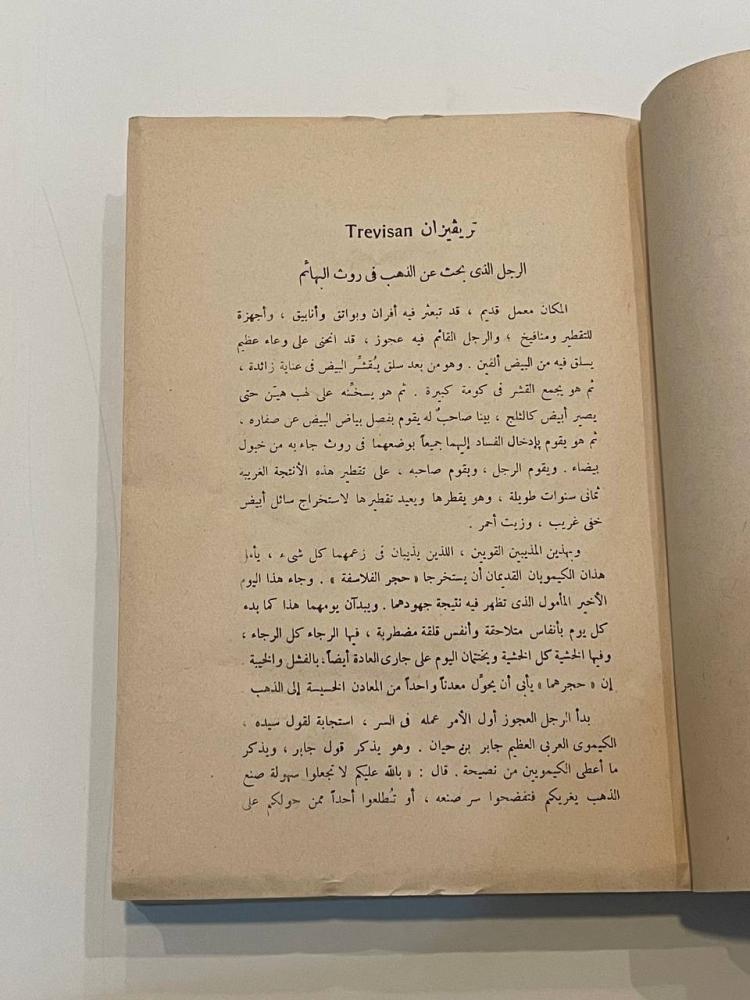 تريڤيزان Trevisan
الرجل الذى بحث عن الذهب فى روث البهائم
المكان معمل قديم ، قد تبعثر فيه أفران وبواتق وأنابيق ، وأجهزة
للتقطير ومنافيخ ؛ والرجل القائم فيه عجوز ، قد انحنى على وعاء عظيم
يسلق فيه من البيض ألفين . وهو من بعد سلق يُقشِّر البيض فى عناية زائدة ،
ثم هو يجمع القشر فى كومة كبيرة . ثم هو يسخِّنه على لهب هيّن حتى
يصير أبيض كالثلج ، بينا صاحبٌ له يقوم بفصل بياض البيض عن صفاره .
ثم هو يقوم بإدخال الفساد إليهما جميعاً بوضعهما فى روث جاء به من خيول
بيضاء . ويقوم الرجل ، ويقوم صاحبه ، على تقطير هذه الأنتجة الغريبة
ثمانى سنوات طويلة ، وهو يقطرها ويعيد تقطيرها لاستخراج سائل أبيض
خفى غريب ، وزيت أحمر .
وبهذين المذيبين القويين ، اللذين يذيبان فى زعمهما كل شىء ، يأمل
هذان الكيمويان القديمان أن يستخرجا « حجر الفلاسفة » . وجاء هذا اليوم
الأخير المأمول الذى تظهر فيه نتيجة جهودهما . ويبدآن يومهما هذا كما بدء
كل يوم بأنفاس متلاحقة وأنفس قلقة مضطربة ، فيها الرجاء كل الرجاء ،
وفيها الخشية كل الخشية ويختتمان اليوم على جارى العادة أيضاً ، بالفشل والخيبة
إن « حجرهما » يأبى أن يحوّل معدناً واحداً من المعادن الخسيسة إلى الذهب
بدأ الرجل العجوز أول الأمر عمله فى السر ، استجابة لقول سيده ،
الكيموى العربى العظيم جابر بن حيان . وهو يذكر قول جابر ، ويذكر
ما أعطى الكيمويين من نصيحة . قال : « بالله عليكم لا تجعلوا سهولة صنع
الذهب يغريكم فتفضحوا سر صنعه ، أو تُطلعوا أحداً ممن حولكم على